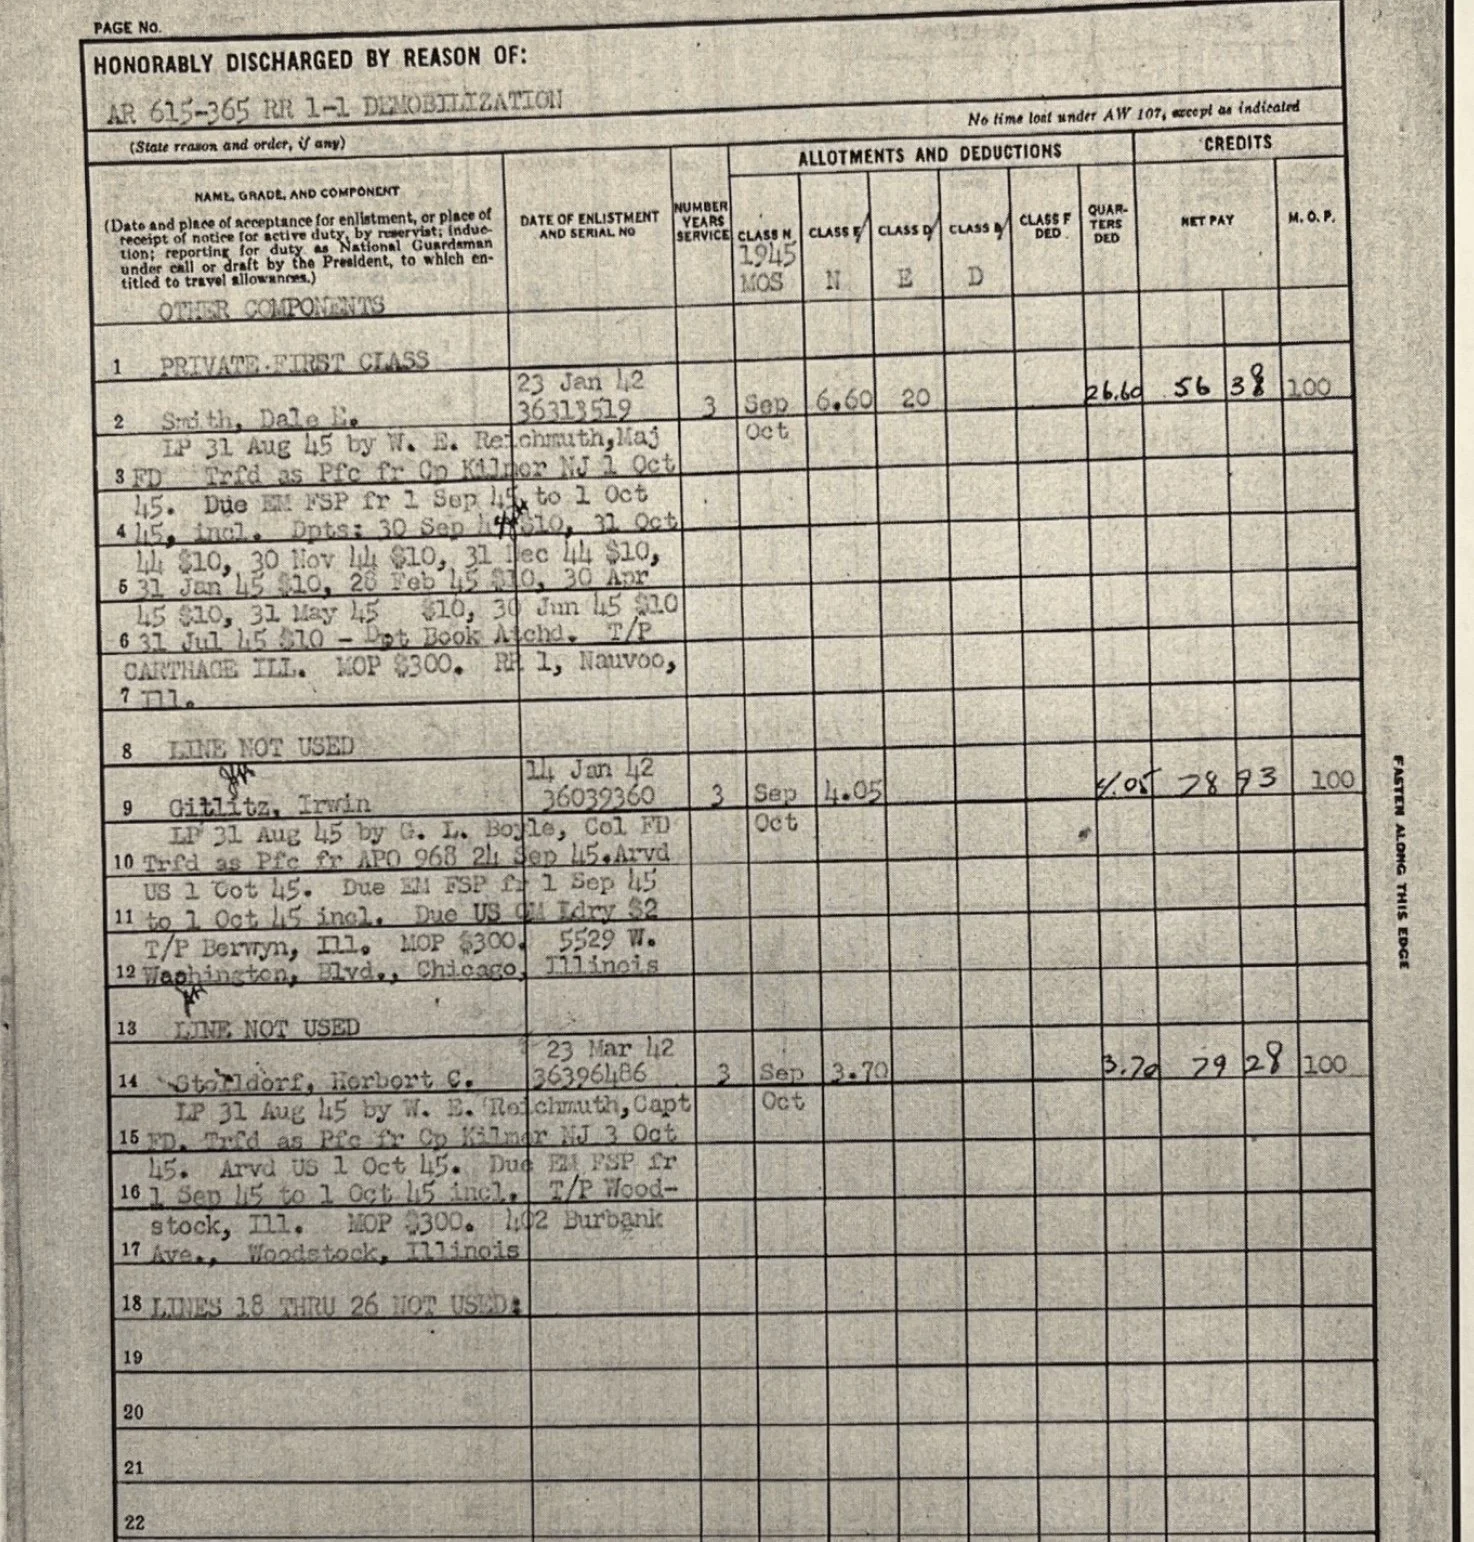 PAGE No.
HONORABLY DISCHARGED BY REASON OF:
AR 615-365 RR 1-1 DEMOBILIZATION
No time lost under AW 107, except as indicated
(State reason and order, if any)
ALLOTMENTS AND DEDUCTIONS
CREDITS
NAME, GRADE, AND COMPONENT
(Date and place of acceptance for enlistment, or place of
receipt of notice for active duty, by reservist; induc-
tion; reporting for duty as National Guardsman
under call or draft by the President, to which en-
titled to travel allowances.)
DATE OF ENLISTMENT
AND SERIAL NO
NUMBER
YEARS
SERVICE
CLASS N
1945
MOS
CLASS E
N
CLASS D
E
CLASS B
D
CLASS F
DED
QUAR-
TERS
DED
NET PAY
M. O. P.
OTHER COMPONENTS
1 PRIVATE FIRST CLASS
23 Jan 42
2 Smith, Dale E. 36313519 3 Sep 6.60 20 26.60 56 38 100
LP 31 Aug 45 by W. E. Reichmuth,Maj Oct
3 FD Trfd as Pfc fr Cp Kilmer NJ 1 Oct
45. Due EM FSP fr 1 Sep 45 to 1 Oct
4 45, incl. Dpts: 30 Sep 44 $10, 31 Oct
44 $10, 30 Nov 44 $10, 31 Dec 44 $10,
5 31 Jan 45 $10, 28 Feb 45 $10, 30 Apr
45 $10, 31 May 45 $10, 30 Jun 45 $10
6 31 Jul 45 $10 - Dpt Book Atchd. T/P
CARTHAGE ILL. MOP $300. RR 1, Nauvoo,
7 Ill.
8 LINE NOT USED
14 Jan 42
9 Gitlitz, Irwin 36039360 3 Sep 4.05 4.05 78 93 100
LP 31 Aug 45 by G. L. Boyle, Col FD Oct
10 Trfd as Pfc fr APO 968 24 Sep 45.Arvd
US 1 Oct 45. Due EM FSP fr 1 Sep 45
11 to 1 Oct 45 incl. Due US QM Ldry $2
T/P Berwyn, Ill. MOP $300. 5529 W.
12 Washington, Blvd., Chicago, Illinois
13 LINE NOT USED
23 Mar 42
14 Herbert C. 36396486 3 Sep 3.70 3.70 79 28 100
LP 31 Aug 45 by W. E. Reichmuth,Capt Oct
15 FD. Trfd as Pfc fr Cp Kilmer NJ 3 Oct
45. Arvd US 1 Oct 45. Due EM FSP fr
16 1 Sep 45 to 1 Oct 45 incl. T/P Wood-
stock, Ill. MOP $300. 402 Burbank
17 Ave., Woodstock, Illinois
18 LINES 18 THRU 26 NOT USED:
19
20
21
22
FASTEN ALONG THIS EDGE